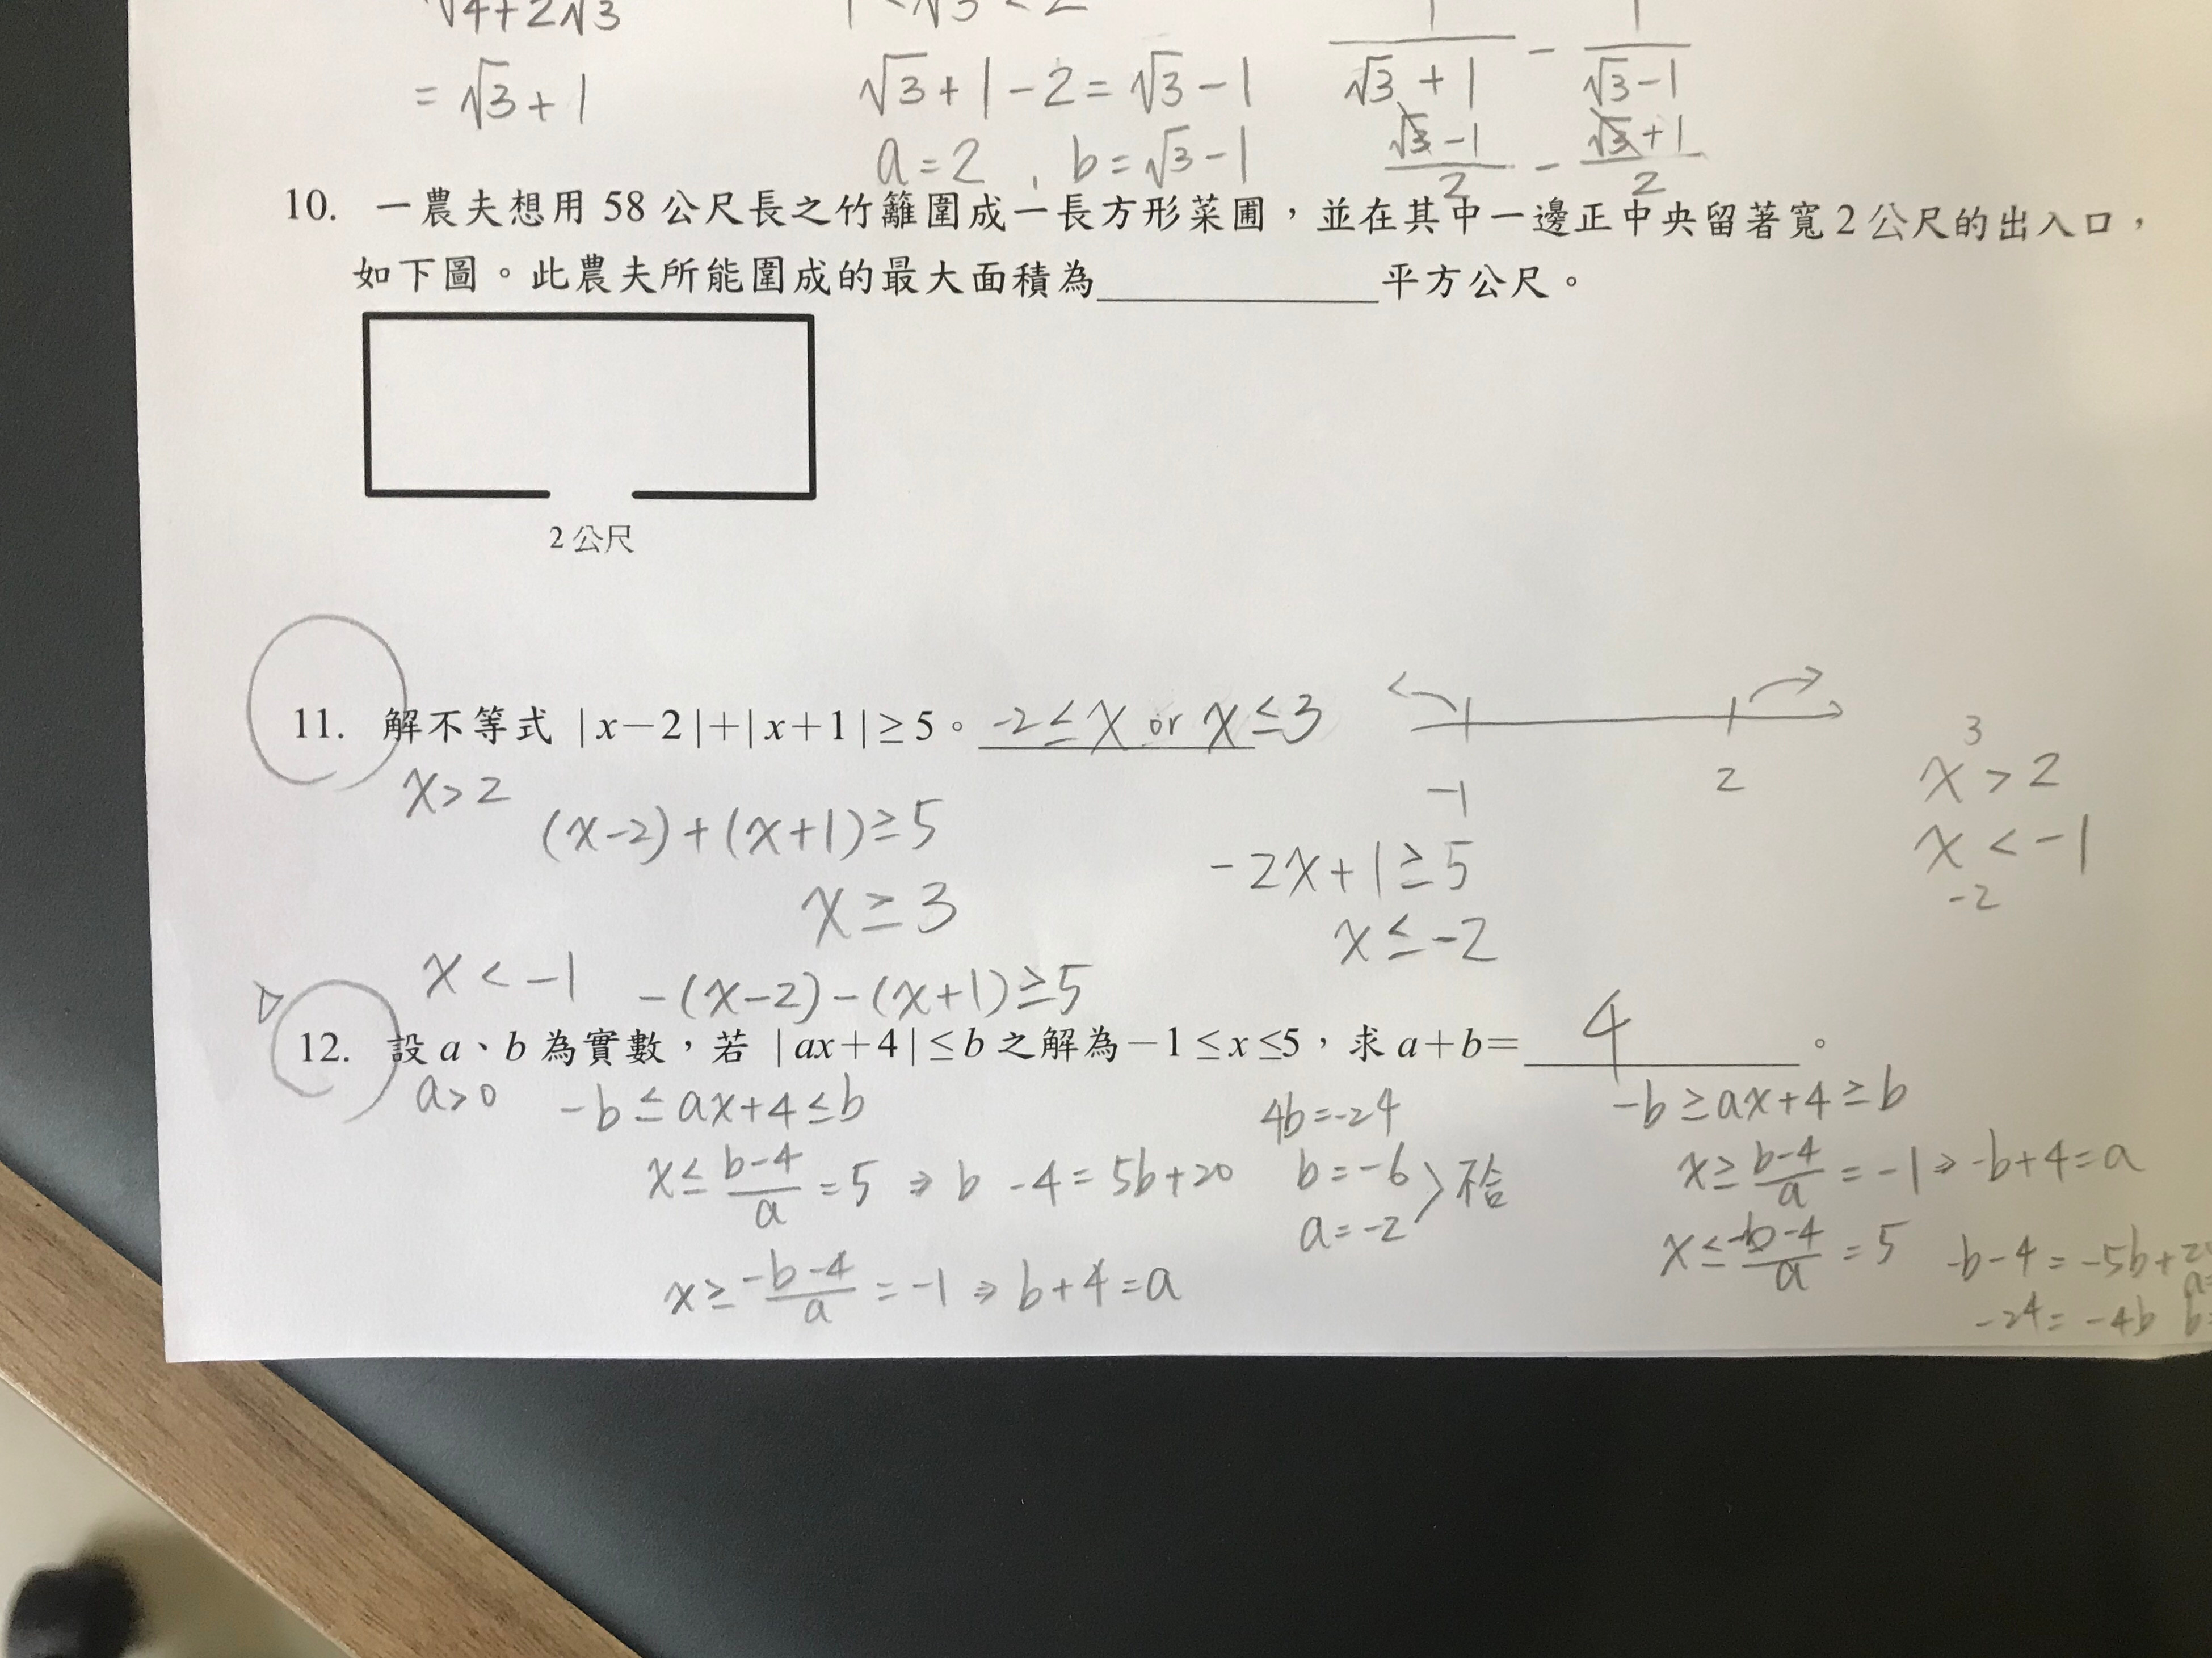 √4+2√3
= √3+1
1<√3<2
√3+1-2=√3-1
a=2, b=√3-1
1/(√3+1) - 1/(√3-1)
(√3-1)/2 - (√3+1)/2
10. 一農夫想用 58 公尺長之竹籬圍成一長方形菜圃，並在其中一邊正中央留著寬 2 公尺的出入口，
如下圖。此農夫所能圍成的最大面積為____________平方公尺。
2 公尺
11. 解不等式 |x-2|+|x+1|≥5。 -2≤x or x≤3
-1 2
3
x>2
x<-1
-2
x>2
(x-2)+(x+1)≥5
x≥3
-2x+1≥5
x≤-2
x<-1 -(x-2)-(x+1)≥5
12. 設 a、b 為實數，若 |ax+4|≤b 之解為-1≤x≤5，求 a+b= 4 。
a>0 -b≤ax+4≤b
x≤(b-4)/a=5 ⇒ b-4=5b+20
x≥(-b-4)/a=-1 ⇒ b+4=a
4b=-24
b=-6
a=-2
不合
-b≥ax+4≥b
x≥(b-4)/a=-1 ⇒ -b+4=a
x≤(-b-4)/a=5 -b-4=-5b+2
-24=-4b
a=
b=